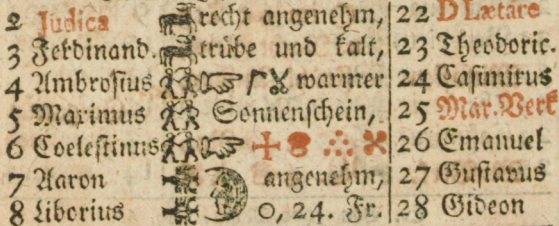 2 Judica recht angenehm, 22 D Lætare
3 Ferdinand. trübe und kalt, 23 Theodoric.
4 Ambrosius warmer 24 Casimirus
5 Maximus Sonnenschein, 25 Mar. Verk
6 Coelestinus 26 Emanuel
7 Aaron angenehm, 27 Gustavus
8 Liborius 0, 24. Fr. 28 Gideon